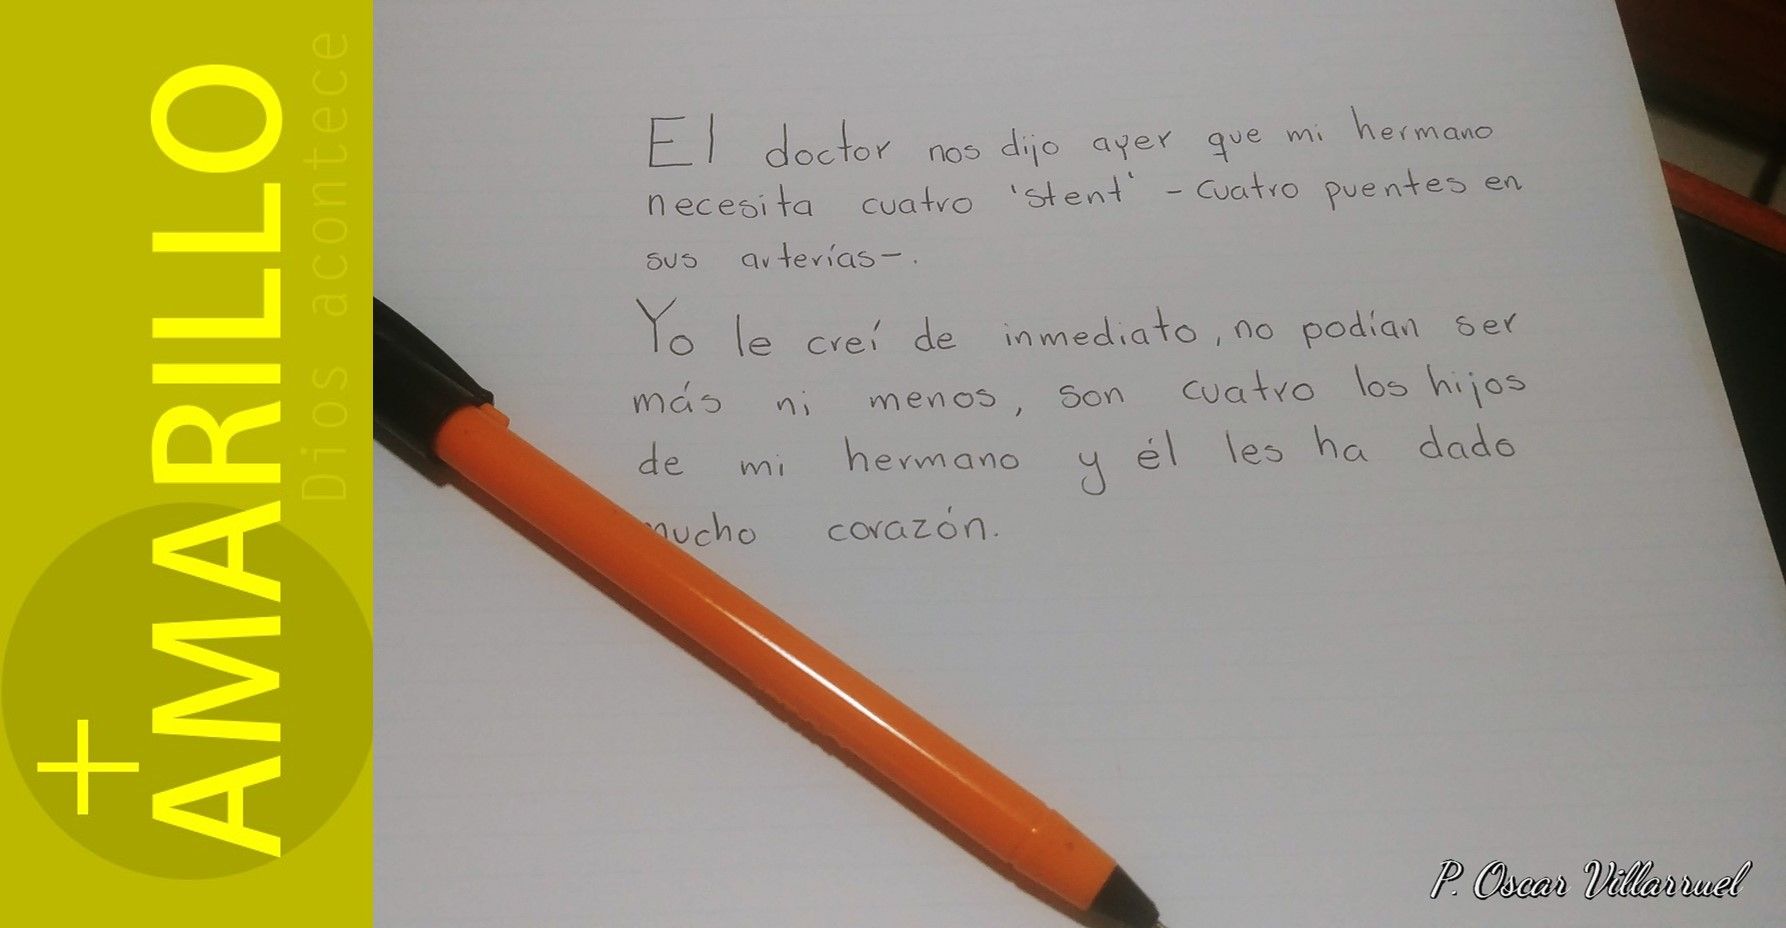 +AMARILLO
Dios acontece
El doctor nos dijo ayer que mi hermano
necesita cuatro 'stent' - cuatro puentes en
sus arterías-.
Yo le creí de inmediato, no podían ser
más ni menos, son cuatro los hijos
de mi hermano y él les ha dado
mucho corazón.
P. Oscar Villarruel